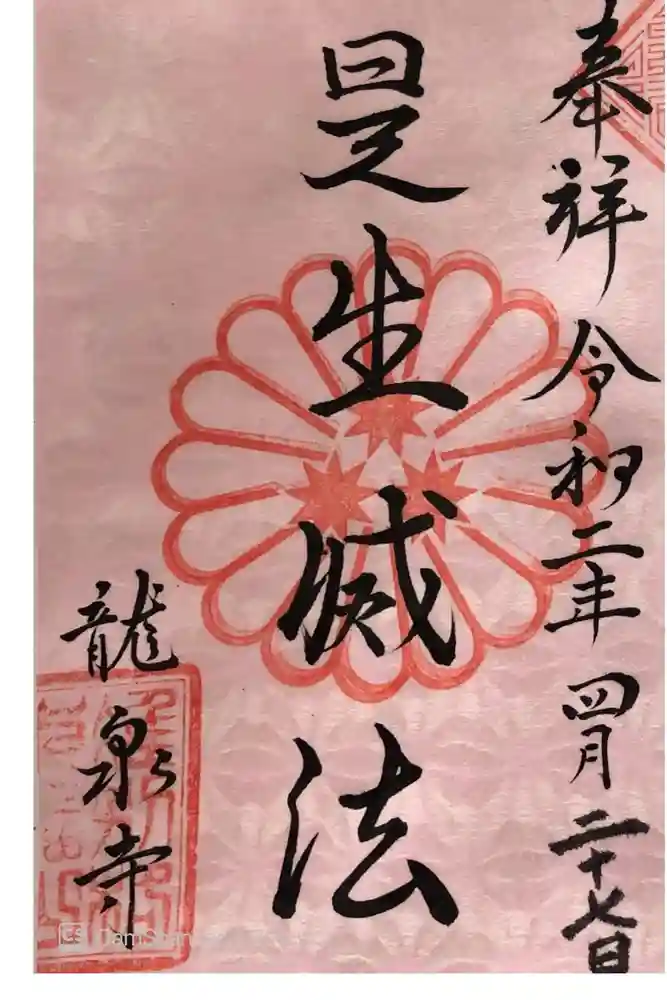 奉拝 令和二年四月二十七日
是生滅法
龍泉寺
CS CamScanner